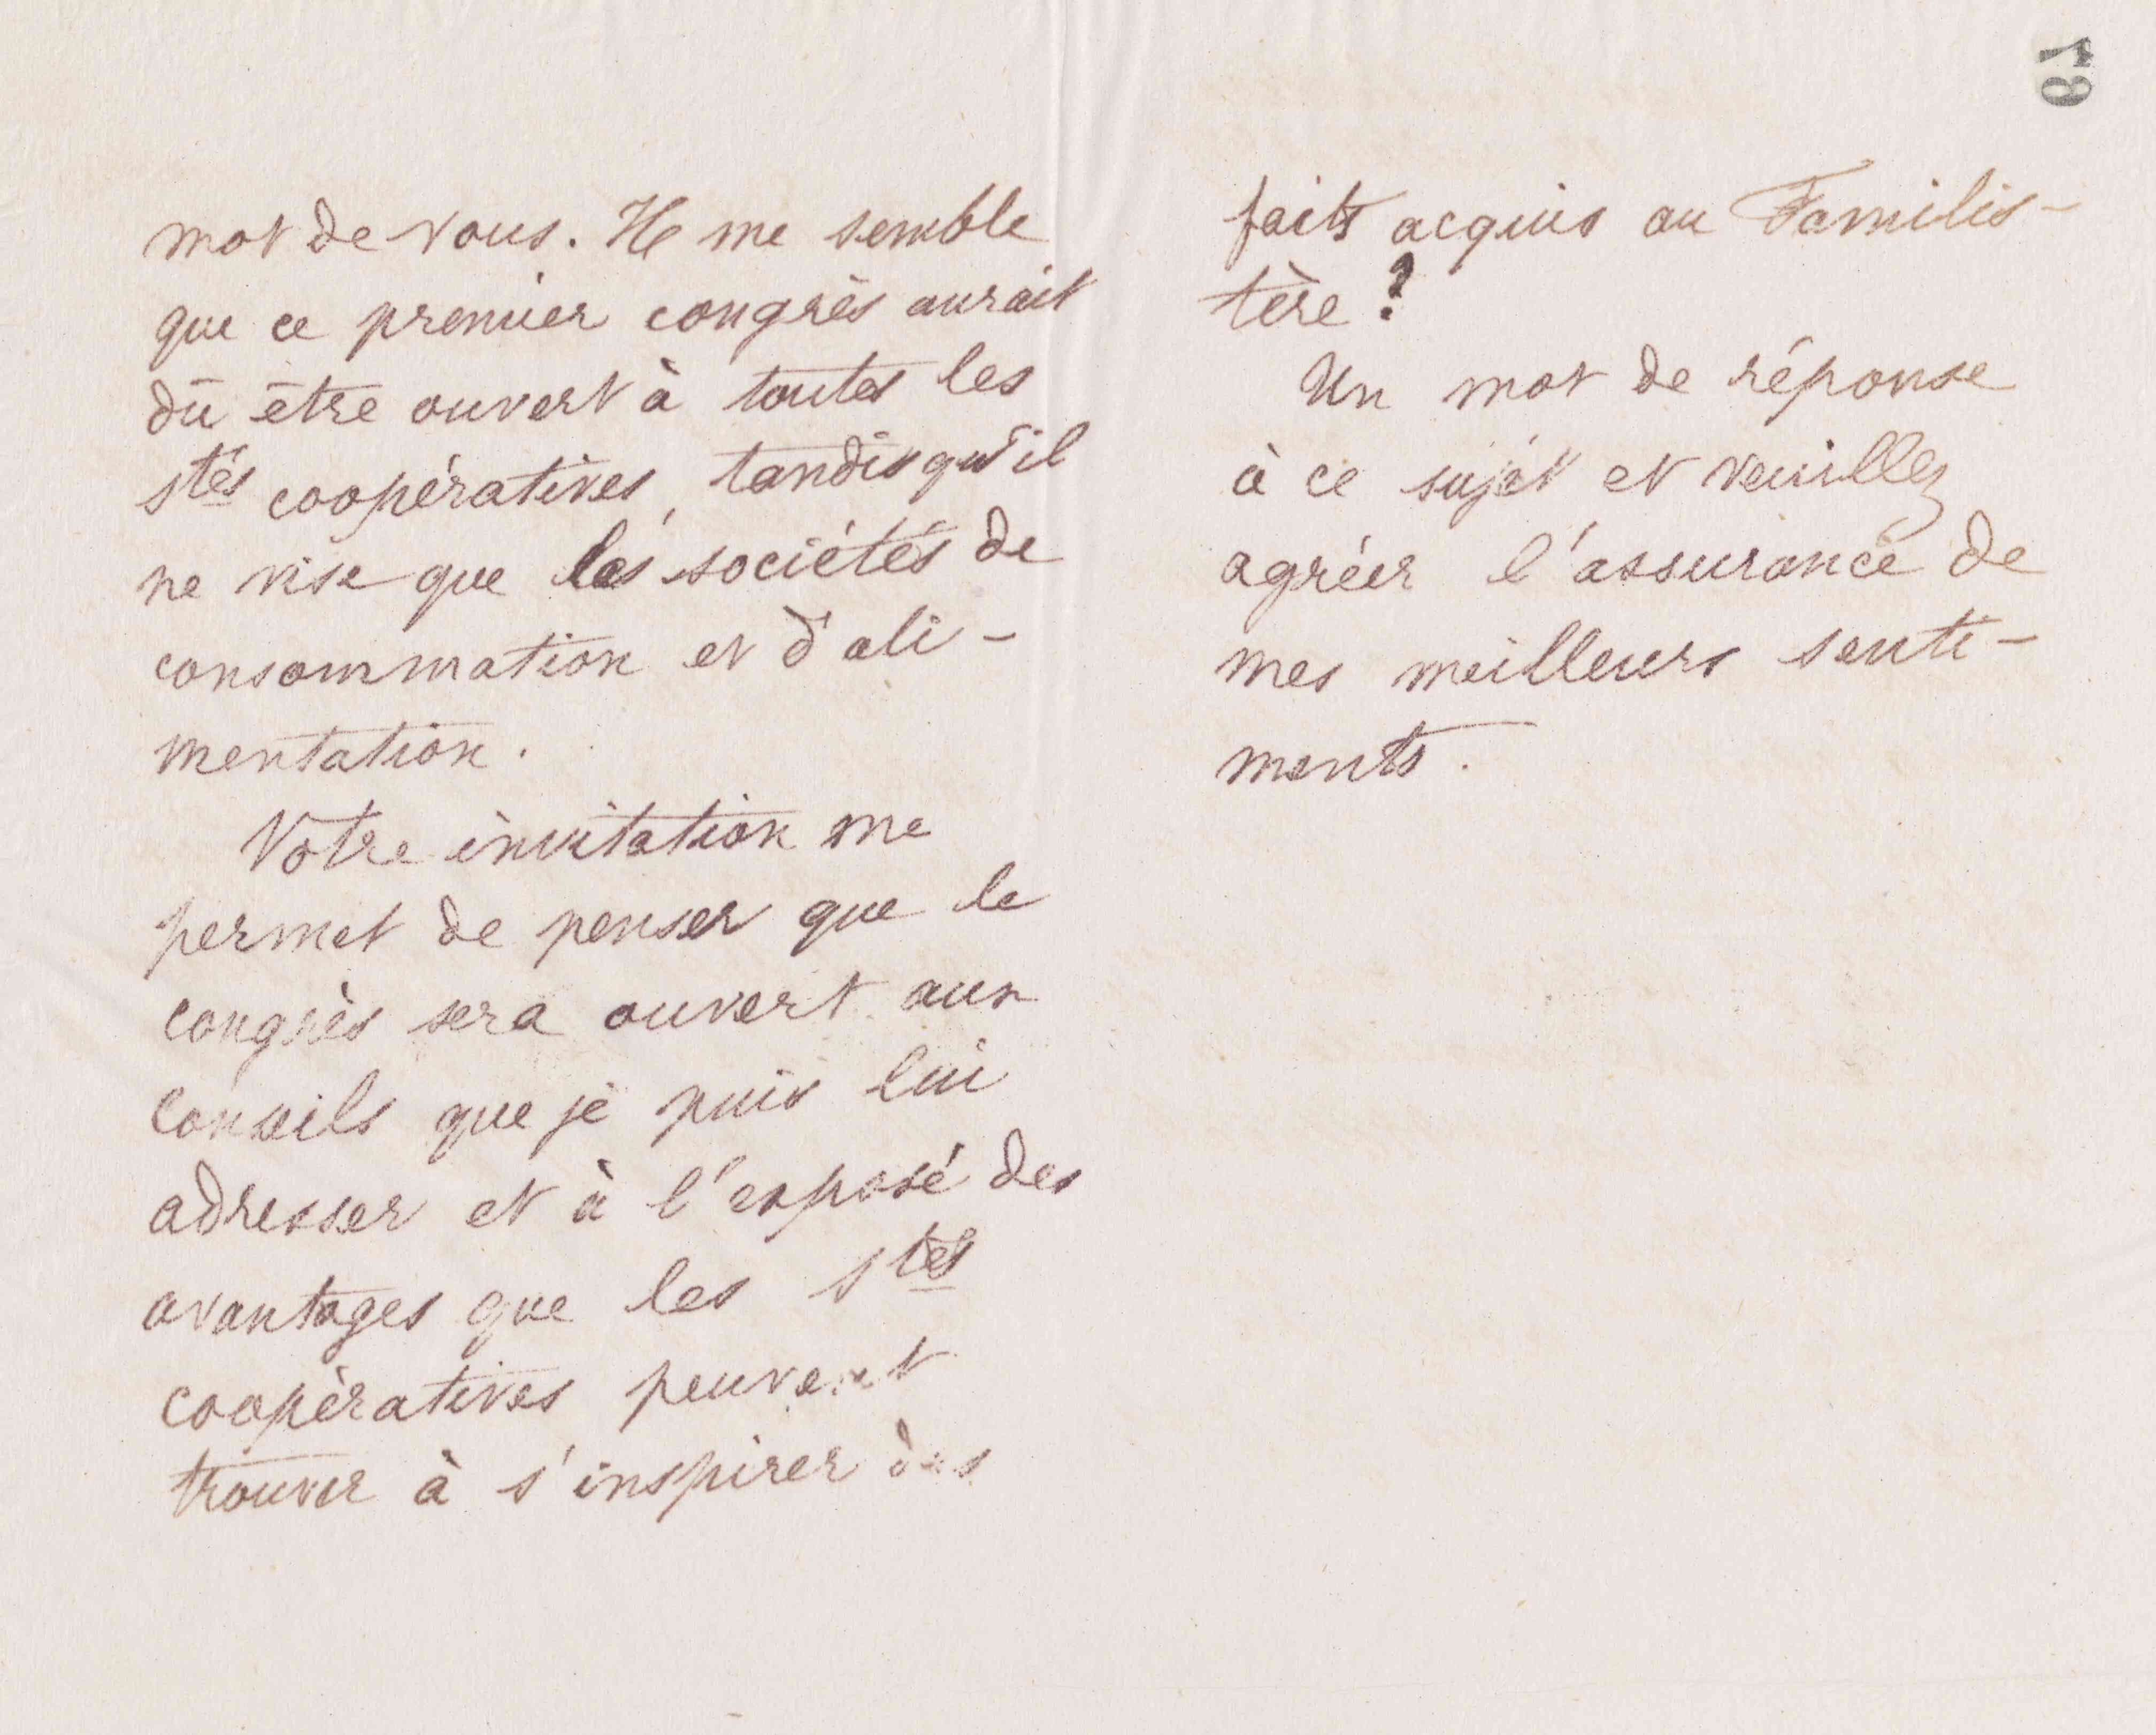 mot de vous. Il me semble
que ce premier congrès aurait
dû être ouvert à toutes les
stés coopératives, tandis qu'il
ne vise que les sociétés de
consommation et d'ali-
mentation.
Votre invitation me
permet de penser que le
congrès sera ouvert aux
conseils que je puis lui
adresser et à l'exposé des
avantages que les stés
coopératives peuvent
trouver à s'inspirer des
faits acquis au Familis-
tère ?
Un mot de réponse
à ce sujet et veuillez
agréer l'assurance de
mes meilleurs senti-
ments.